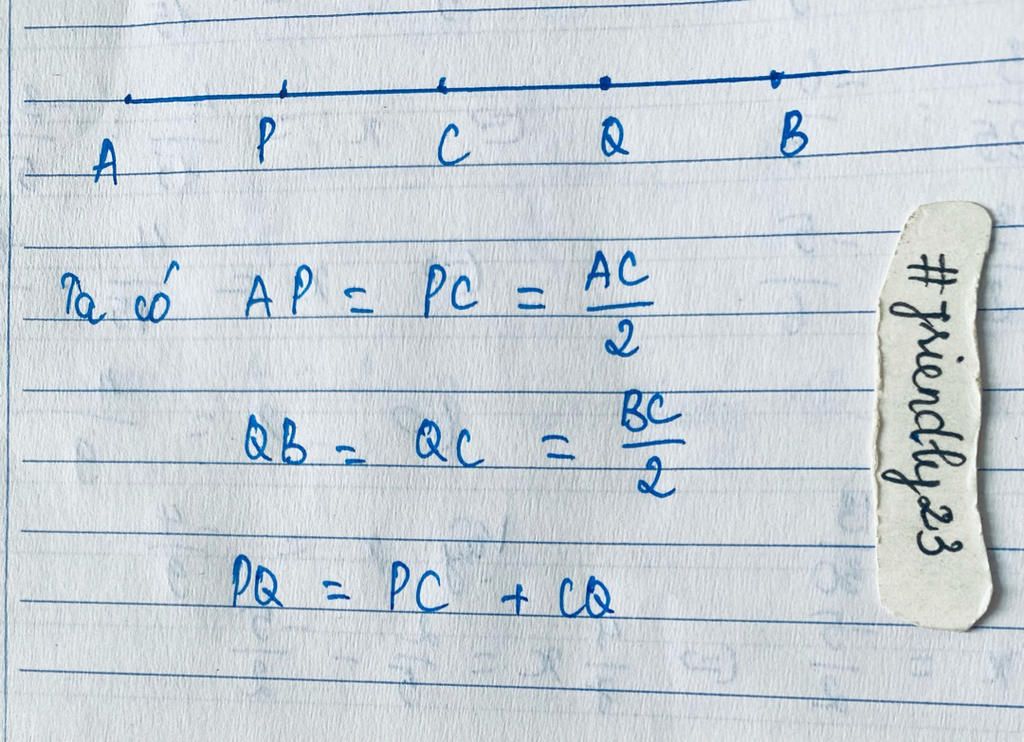 A P C Q B
Ta có AP = PC = AC/2
QB = QC = BC/2
PQ = PC + CQ
#friendly23